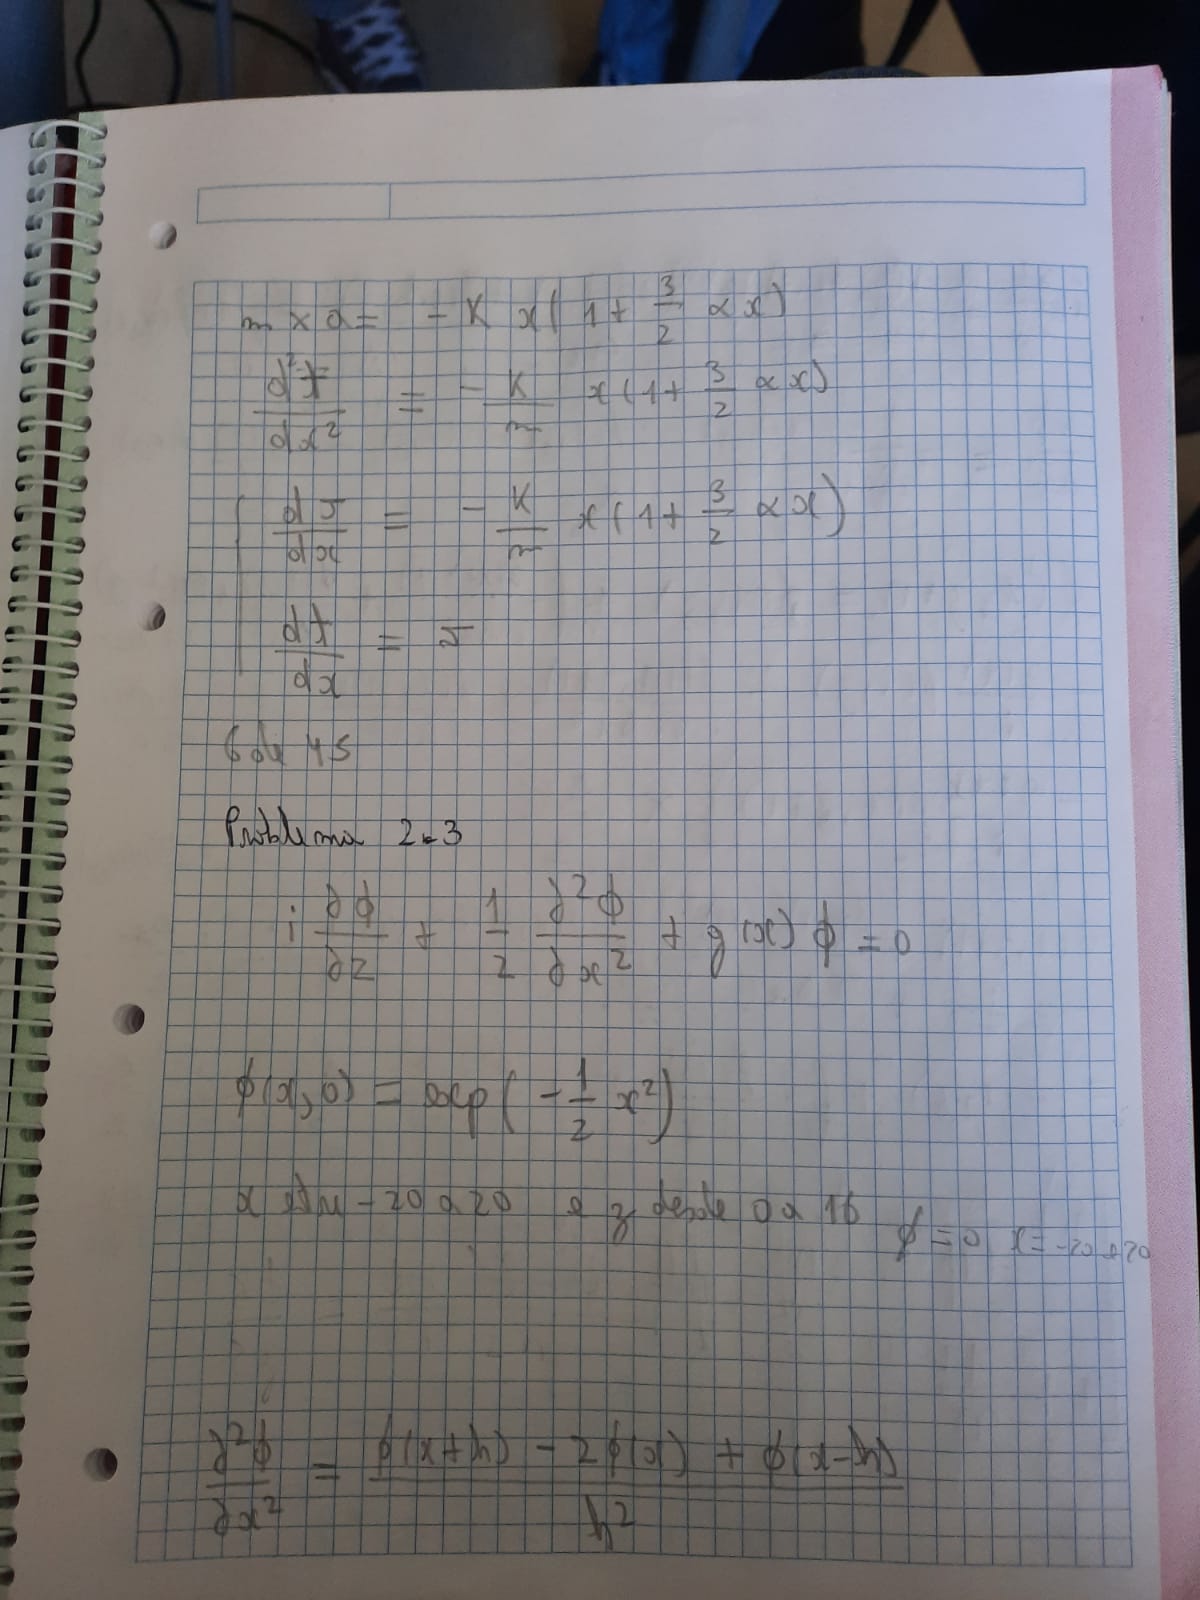 m x a = - K x (1 + 3/2 α x)
d²t/dx² = - K/m x (1 + 3/2 α x)
dv/dx = - K/m x (1 + 3/2 α x)
dt/dx = v
Problema 2.3
i ∂ϕ/∂z + 1/2 ∂²ϕ/∂x² + g(x) ϕ = 0
ϕ(x,0) = exp(-1/2 x²)
x -20 a 20 e z desde 0 a 16 ϕ = 0 x = -20 e 20
∂²ϕ/∂x² = ϕ(x+h) - 2ϕ(x) + ϕ(x-h) / h²